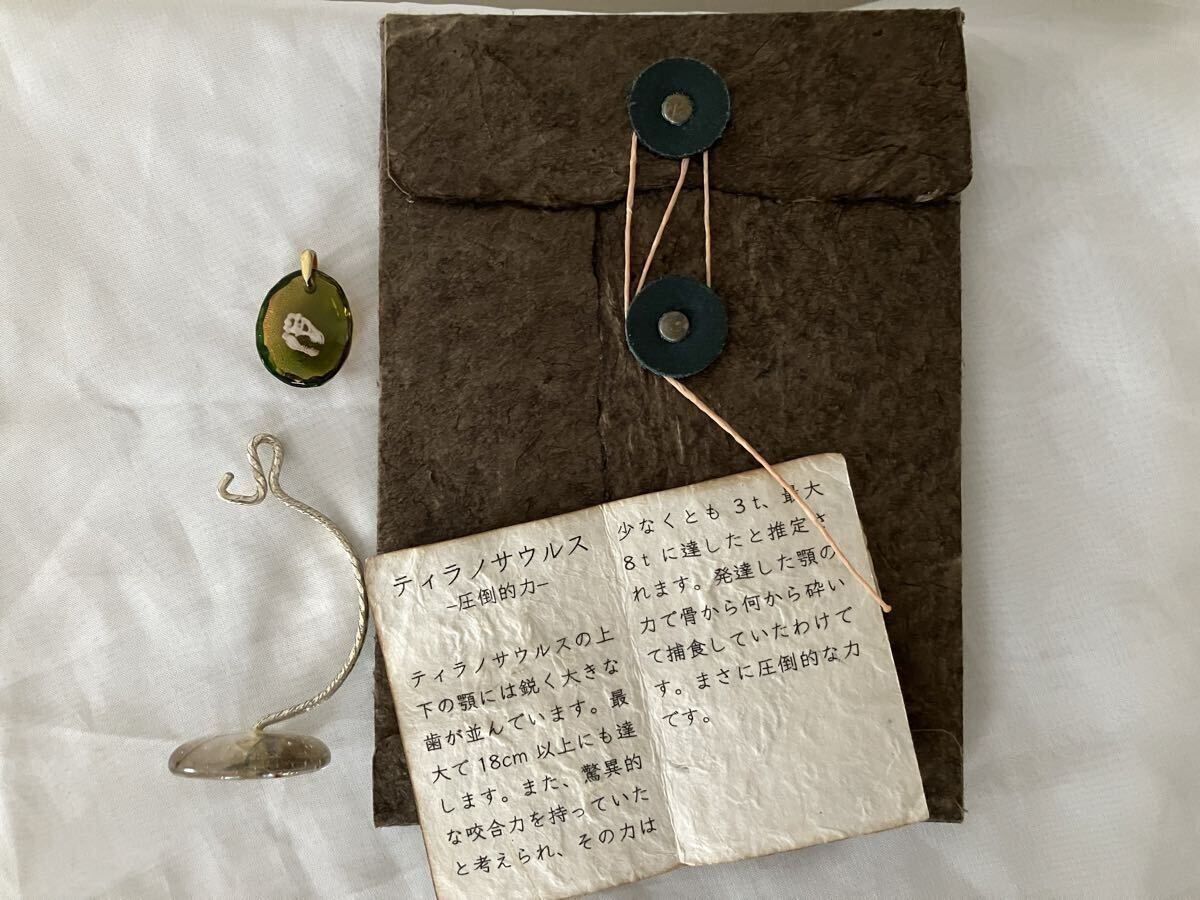 ティラノサウルス
–圧倒的力–
ティラノサウルスの上
下の顎には鋭く大きな
歯が並んでいます。最
大で 18cm 以上にも達
します。また、驚異的
な咬合力を持っていた
と考えられ、その力は
少なくとも 3t、最大
8t に達したと推定さ
れます。発達した顎の
力で骨から何から砕い
て捕食していたわけで
す。まさに圧倒的な力
です。